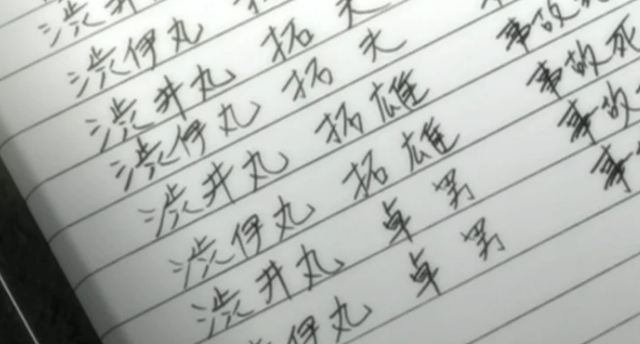 渋井
渋伊丸
渋井丸 拓夫
渋伊丸 拓夫
渋井丸 拓雄 事故死
渋伊丸 拓雄 事故死
渋井丸 卓男 事故
伊丸 卓男 事